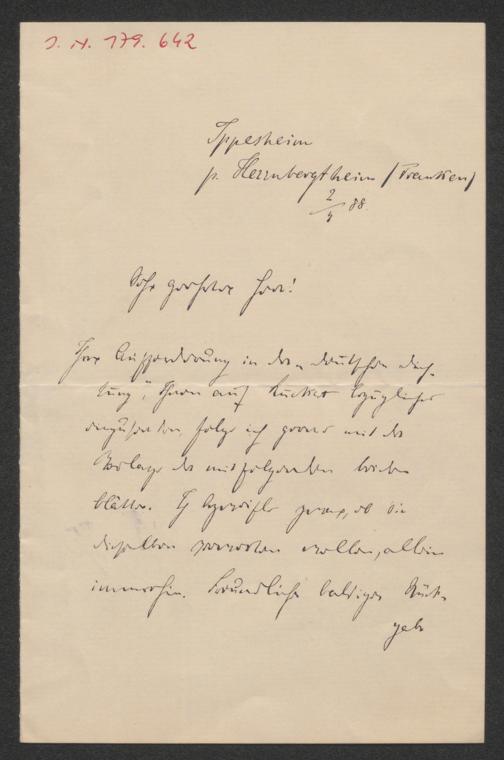 J. N. 179.642
Ippesheim
p. Herrnbergtheim (Franken)
2/4 88.
Sehr geehrter Herr!
Ihrer Aufforderung in der „deutschen Dich-
tung", Ihnen auf Rückert bezügliches
einzusenden, folge ich gerne mit der
Vorlage der mitfolgenden beiden
Blätter. Ich bezweifle zwar, ob Sie
dieselben verwerten wollen, allein
immerhin. Freundliche baldige Rück-
gabe